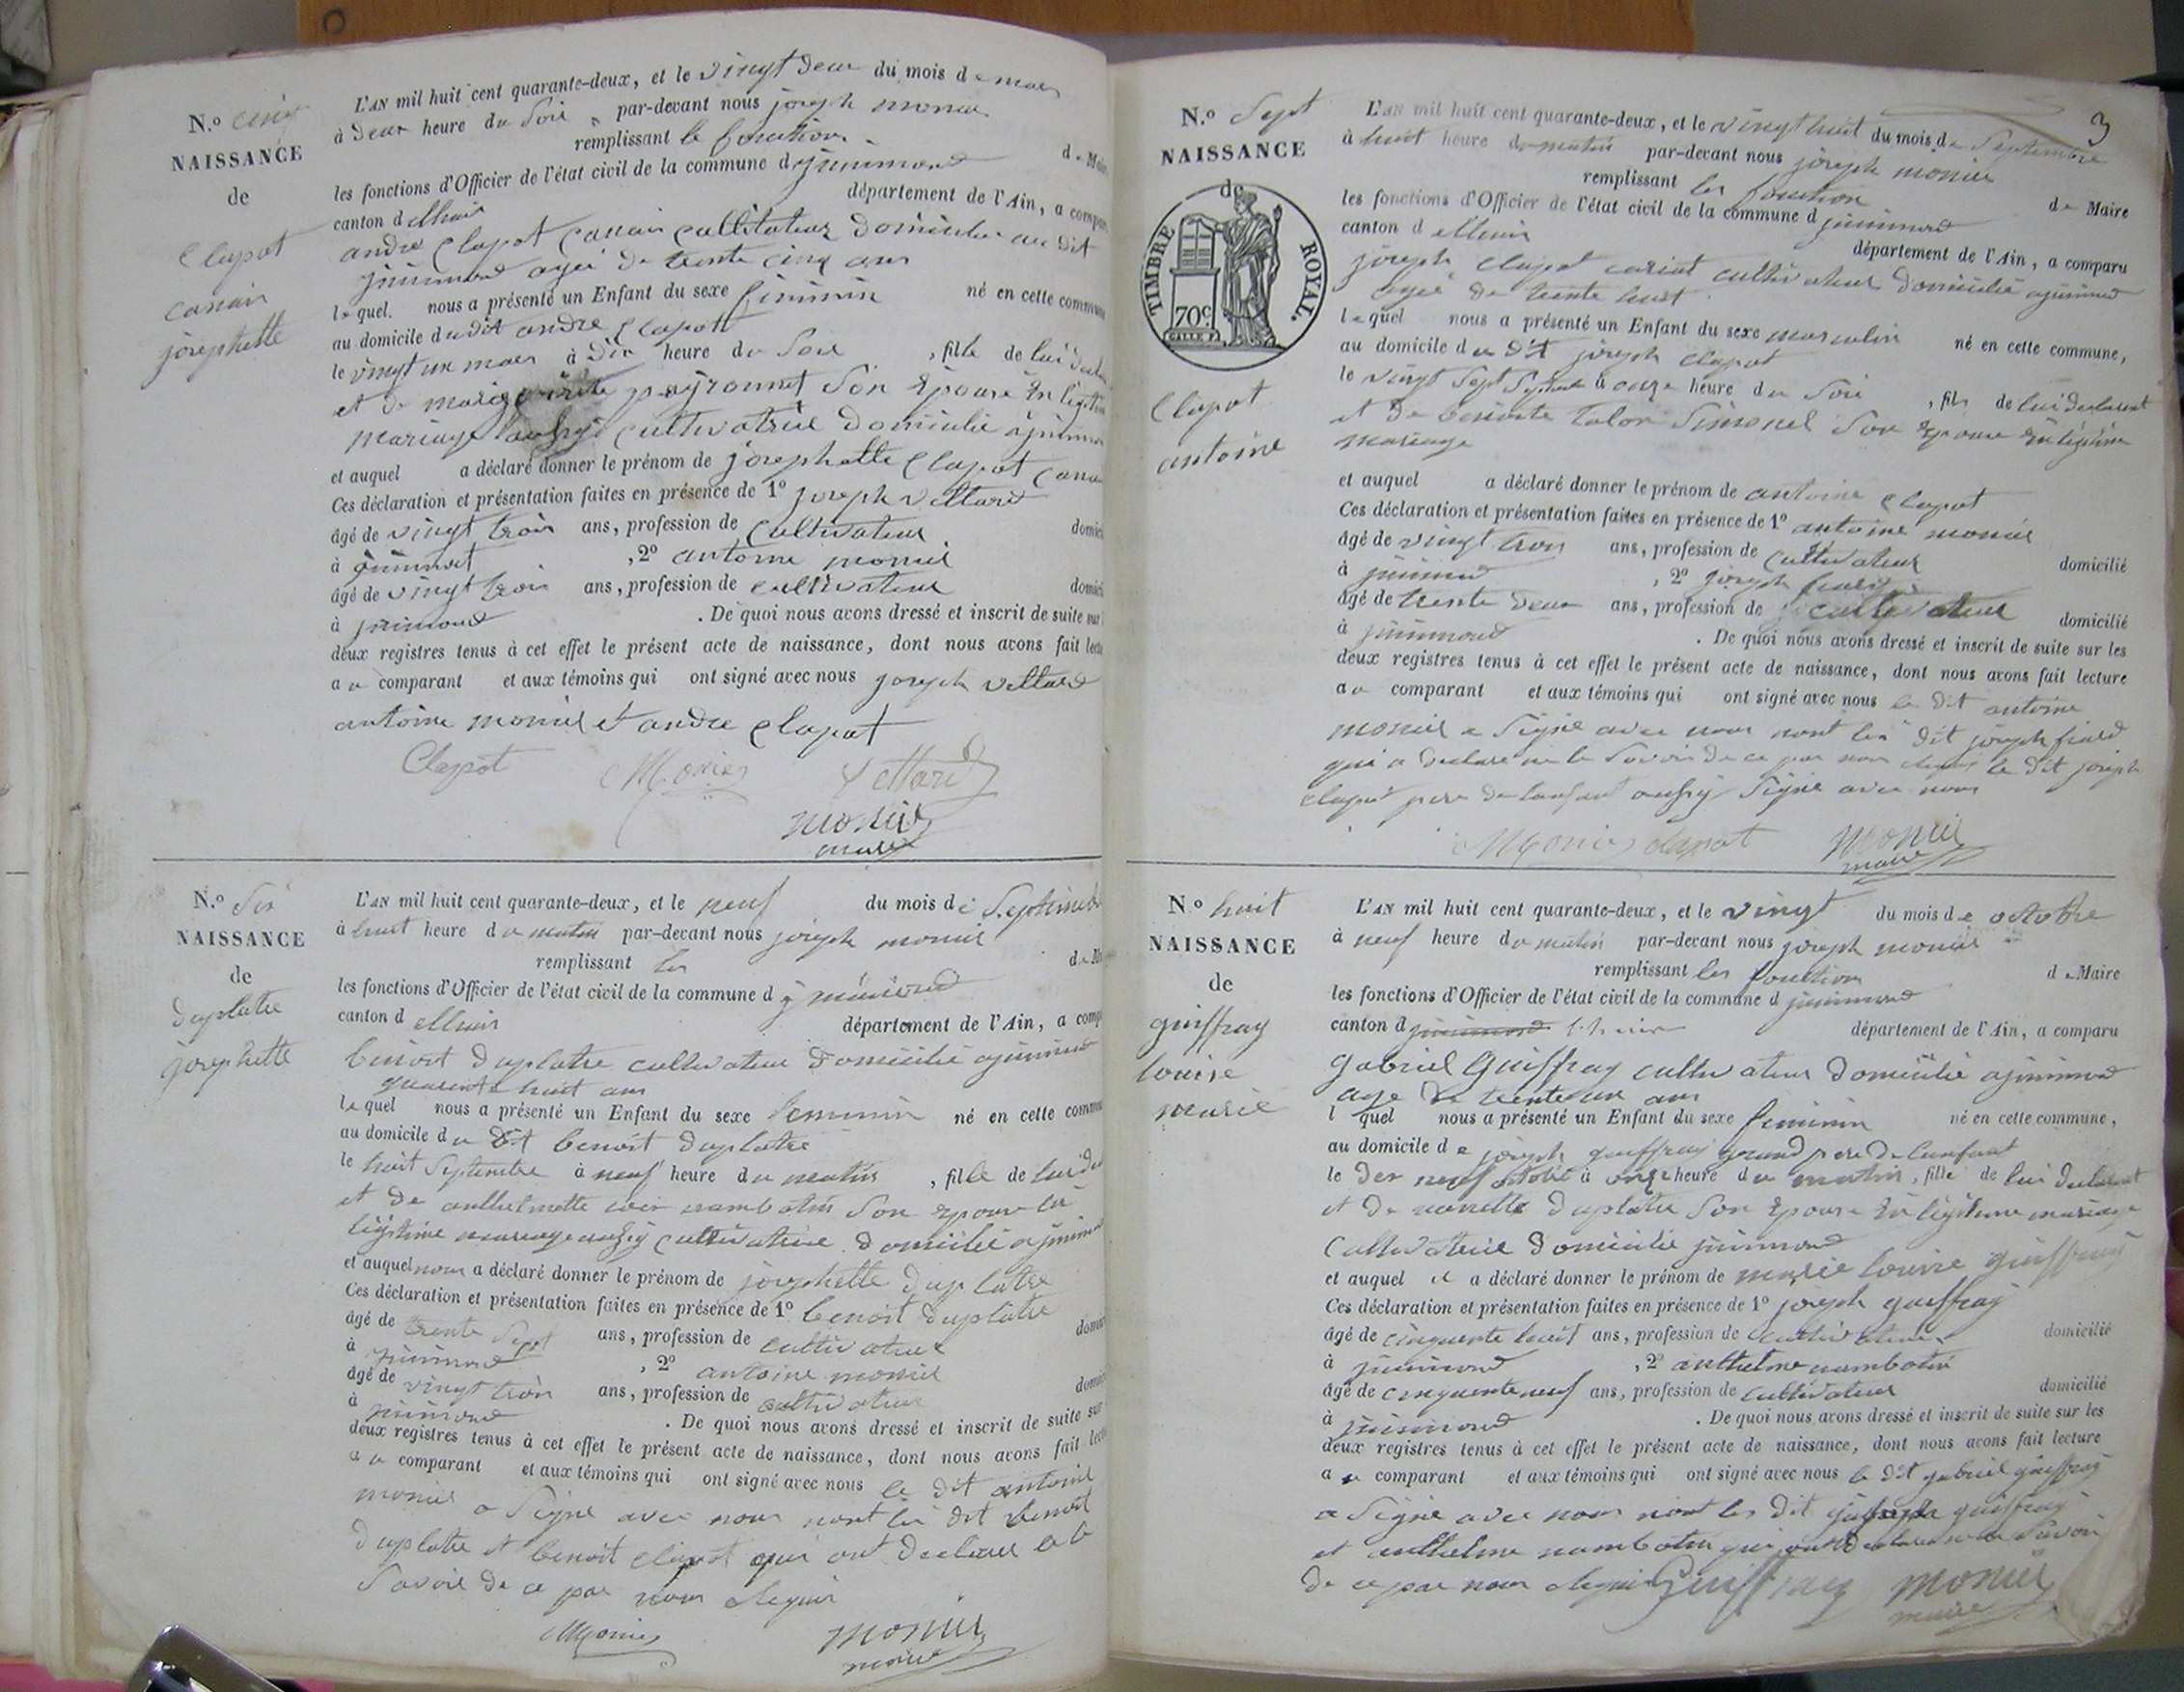 N.o cinq
NAISSANCE
de
Clapot
canain
josephette
L'AN mil huit cent quarante-deux, et le vingt deux du mois de mars
à deux heure du Soir par-devant nous joseph monier
remplissant le fonction de Maire
les fonctions d'Officier de l'état civil de la commune d jujurieux
canton d département de l'Ain, a compar
andre Clapot canain cultivateur domicilie au dit
agée de trente cinq ans
lequel nous a présenté un Enfant du sexe feminin né en cette commune
au domicile du dit andre Clapot
le vingt un mars à dix heure du Soir , fille de lui
et de marie peyronnet Son épouse En légitime
mariage aussy cultivatrice domicilie
et auquel a déclaré donner le prénom de josephette Clapot cana
Ces déclaration et présentation faites en présence de 1o joseph vettard
âgé de vingt trois ans, profession de Cultivateur domici
à , 2o antoine monier
âgé de vingt trois ans, profession de cultivateur domici
à . De quoi nous avons dressé et inscrit de suite sur
deux registres tenus à cet effet le présent acte de naissance, dont nous avons fait lectu
au comparant et aux témoins qui ont signé avec nous joseph vettard
antoine monier et andre Clapot
Clapot Monier Vettard
monier
maire
N.o Six
NAISSANCE
de
duplatre
josephette
L'AN mil huit cent quarante-deux, et le neuf du mois de Septembre
à huit heure du matin par-devant nous joseph monier
remplissant les de M
les fonctions d'Officier de l'état civil de la commune d
canton d département de l'Ain, a comp
benoit duplatre cultivateur domicilié
quarente huit ans
lequel nous a présenté un Enfant du sexe feminin né en cette commu
au domicile du dit benoit duplatre
le huit Septembre à neuf heure du matin , fille de lui
et de anthelmette nambotin Son épouse En
légitime mariage aussy cultivatrice domicilié
et auquel nous a déclaré donner le prénom de josephette duplatre
Ces déclaration et présentation faites en présence de 1o benoit duplatre
âgé de trente Sept ans, profession de cultivateur domici
à , 2o antoine monier
âgé de vingt trois ans, profession de cultivateur domici
à . De quoi nous avons dressé et inscrit de suite sur
deux registres tenus à cet effet le présent acte de naissance, dont nous avons fait lectu
au comparant et aux témoins qui ont signé avec nous le dit antoine
monier a Signe avec nous nont les dit benoit
duplatre et benoit clapot qui ont declare le
Savoir de ce par nous requis
Monier monier
maire
3
N.o Sept
NAISSANCE
de
TIMBRE ROYAL.
70c
Clapot
antoine
L'AN mil huit cent quarante-deux, et le vingt huit du mois de Septembre
à huit heure du matin par-devant nous joseph monier
remplissant les fonction de Maire
les fonctions d'Officier de l'état civil de la commune d
canton d département de l'Ain, a comparu
joseph clapot cultivateur domicilié
agé de trente huit
lequel nous a présenté un Enfant du sexe masculin né en cette commune,
au domicile du dit joseph Clapot
le vingt Sept Septembre à onze heure du Soir , fils de lui declarant
et de benoite Son épouse En légitime
mariage
et auquel a déclaré donner le prénom de antoine Clapot
Ces déclaration et présentation faites en présence de 1o antoine monier
âgé de vingt trois ans, profession de Cultivateur domicilié
à , 2o joseph
âgé de trente deux ans, profession de cultivateur domicilié
à . De quoi nous avons dressé et inscrit de suite sur les
deux registres tenus à cet effet le présent acte de naissance, dont nous avons fait lecture
au comparant et aux témoins qui ont signé avec nous le dit antoine
monier a Signe avec nous nont le dit joseph
qui a declare ne le Savoir de ce par nous requis le dit joseph
clapot pere de lanfant aussy Signe avec nous
Monier clapot monier
maire
N.o huit
NAISSANCE
de
guiffray
louise
marie
L'AN mil huit cent quarante-deux, et le vingt du mois de octobre
à neuf heure du matin par-devant nous joseph monier
remplissant les fonction de Maire
les fonctions d'Officier de l'état civil de la commune d
canton d département de l'Ain, a comparu
gabriel Guiffray cultivateur domicilié
age de trente un ans
l quel nous a présenté un Enfant du sexe feminin né en cette commune,
au domicile de joseph guiffray grand pere de lanfant
le dix neuf octobre à onze heure du matin, fille de lui declarant
et de duplatre Son épouse En légitime mariage
Cultivatrice domicilie
et auquel il a déclaré donner le prénom de marie louise guiffray
Ces déclaration et présentation faites en présence de 1o joseph guiffray
âgé de cinquante huit ans, profession de cultivateur domicilié
à , 2o anthelme nambotin
âgé de cinquente neuf ans, profession de cultivateur domicilié
à . De quoi nous avons dressé et inscrit de suite sur les
deux registres tenus à cet effet le présent acte de naissance, dont nous avons fait lecture
au comparant et aux témoins qui ont signé avec nous le dit gabriel guiffray
a Signe avec nous nont les dit joseph guiffray
et anthelme nambotin qui ont declare ne le Savoir
de ce par nous requis Guiffray monier
maire